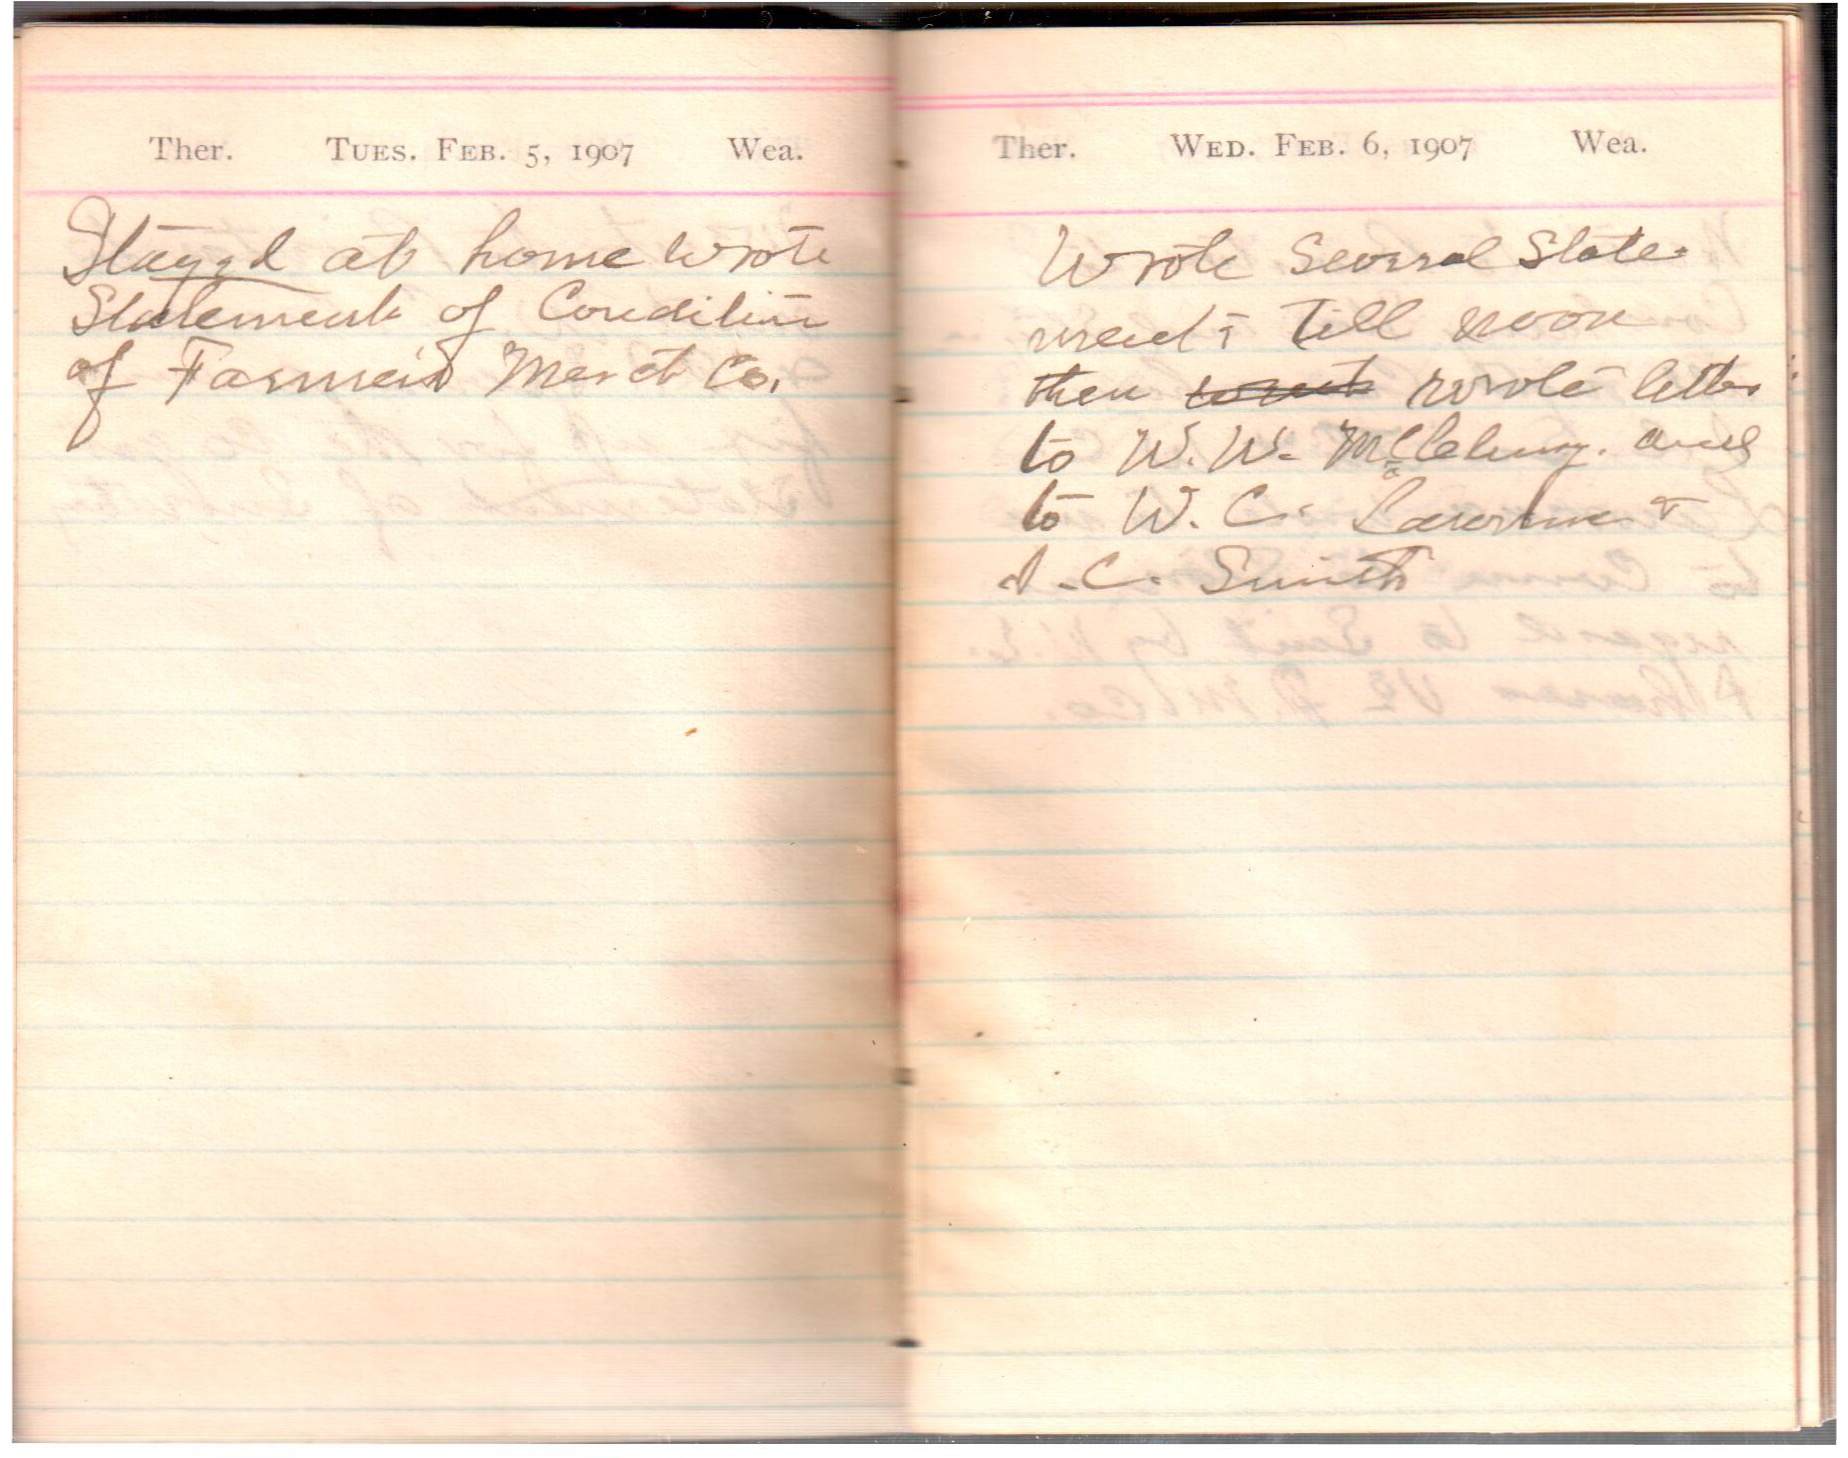 Ther. TUES. FEB. 5, 1907 Wea.
Stayed at home wrote
Statement of Condition
of Farmers Merct Co.
Ther. WED. FEB. 6, 1907 Wea.
Wrote Several State-
ments till noon
then went wrote letter
to W. W. and
to W. C. &
C. Smith